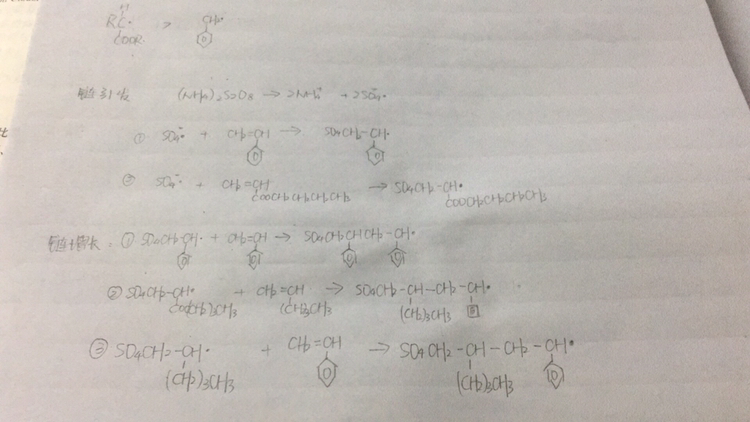 H
RC· > CH2·
COOR
链引发 (NH4)2S2O8 → 2NH4+ + 2SO4-·
① SO4-· + CH2=CH → SO4CH2-CH·
② SO4-· + CH2=CH → SO4CH2-CH·
COOCH2CH2CH2CH3 COOCH2CH2CH2CH3
链增长: ① SO4CH2-CH· + CH2=CH → SO4CH2CHCH2-CH·
② SO4CH2-CH· + CH2=CH → SO4CH2-CH-CH2-CH·
(CH2)3CH3 (CH2)3CH3
③ SO4CH2-CH· + CH2=CH → SO4CH2-CH-CH2-CH·
(CH2)3CH3 (CH2)3CH3